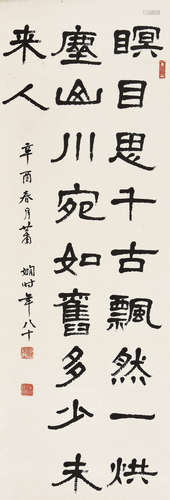 瞑目思千古飄然一烘
塵山川宛如舊多少未
来人
辛酉春月蕭
嫻时年八十